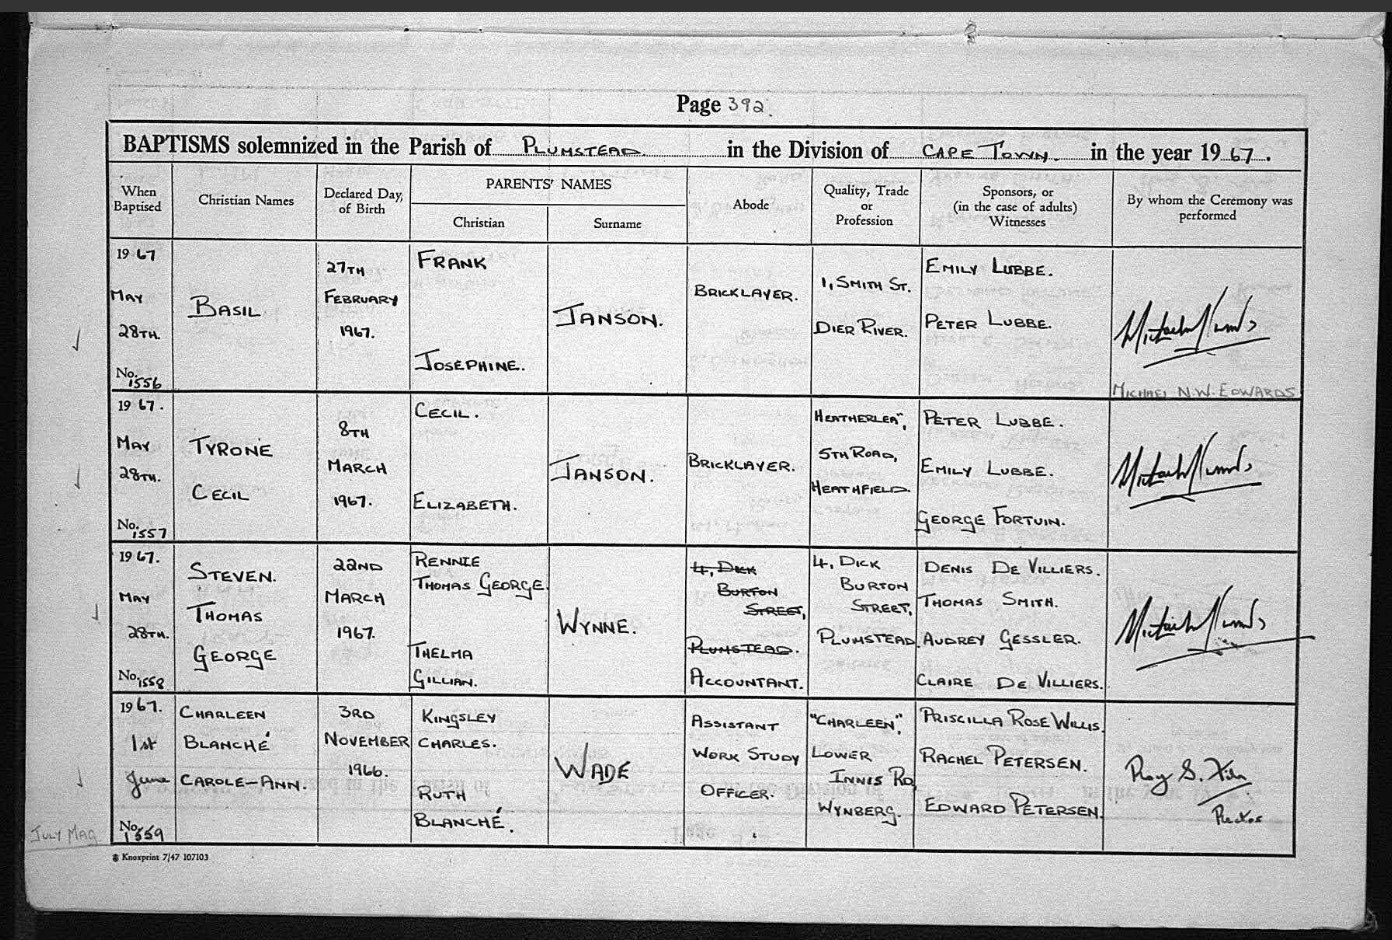 Page 392.
BAPTISMS solemnized in the Parish of PLUMSTEAD. in the Division of CAPE TOWN. in the year 19 67.
When Baptised
Christian Names
Declared Day, of Birth
PARENTS' NAMES
Christian
Surname
Abode
Quality, Trade or Profession
Sponsors, or (in the case of adults) Witnesses
By whom the Ceremony was performed
19 67
MAY
28TH.
No. 1556
BASIL
27TH
FEBRUARY
1967.
FRANK
JOSEPHINE.
JANSON.
BRICKLAYER.
1, SMITH ST.
DIER RIVER.
EMILY LUBBE.
PETER LUBBE.
MICHAEL N.W. EDWARDS
19 67.
MAY
28TH.
No. 1557
TYRONE
CECIL
8TH
MARCH
1967.
CECIL.
ELIZABETH.
JANSON.
BRICKLAYER.
HEATHERLEA",
5TH ROAD,
HEATHFIELD.
PETER LUBBE.
EMILY LUBBE.
GEORGE FORTUIN.
19 67.
MAY
28TH.
No. 1558
STEVEN.
THOMAS
GEORGE
22ND
MARCH
1967.
RENNIE
THOMAS GEORGE.
THELMA
GILLIAN.
WYNNE.
4, DICK
BURTON
STREET,
PLUMSTEAD.
ACCOUNTANT.
4, DICK
BURTON
STREET,
PLUMSTEAD.
DENIS DE VILLIERS.
THOMAS SMITH.
AUDREY GESSLER.
CLAIRE DE VILLIERS.
19 67.
1st
June
No. 1559
CHARLEEN
BLANCHÉ
CAROLE-ANN.
3RD
NOVEMBER
1966.
KINGSLEY
CHARLES.
RUTH
BLANCHÉ.
WADE
ASSISTANT
WORK STUDY
OFFICER.
"CHARLEEN",
LOWER
INNIS RD
WYNBERG.
PRISCILLA ROSE WILLIS.
RACHEL PETERSEN.
EDWARD PETERSEN.
Roy S.
Rector
JULY MAG
Knoxprint 7/47 107103